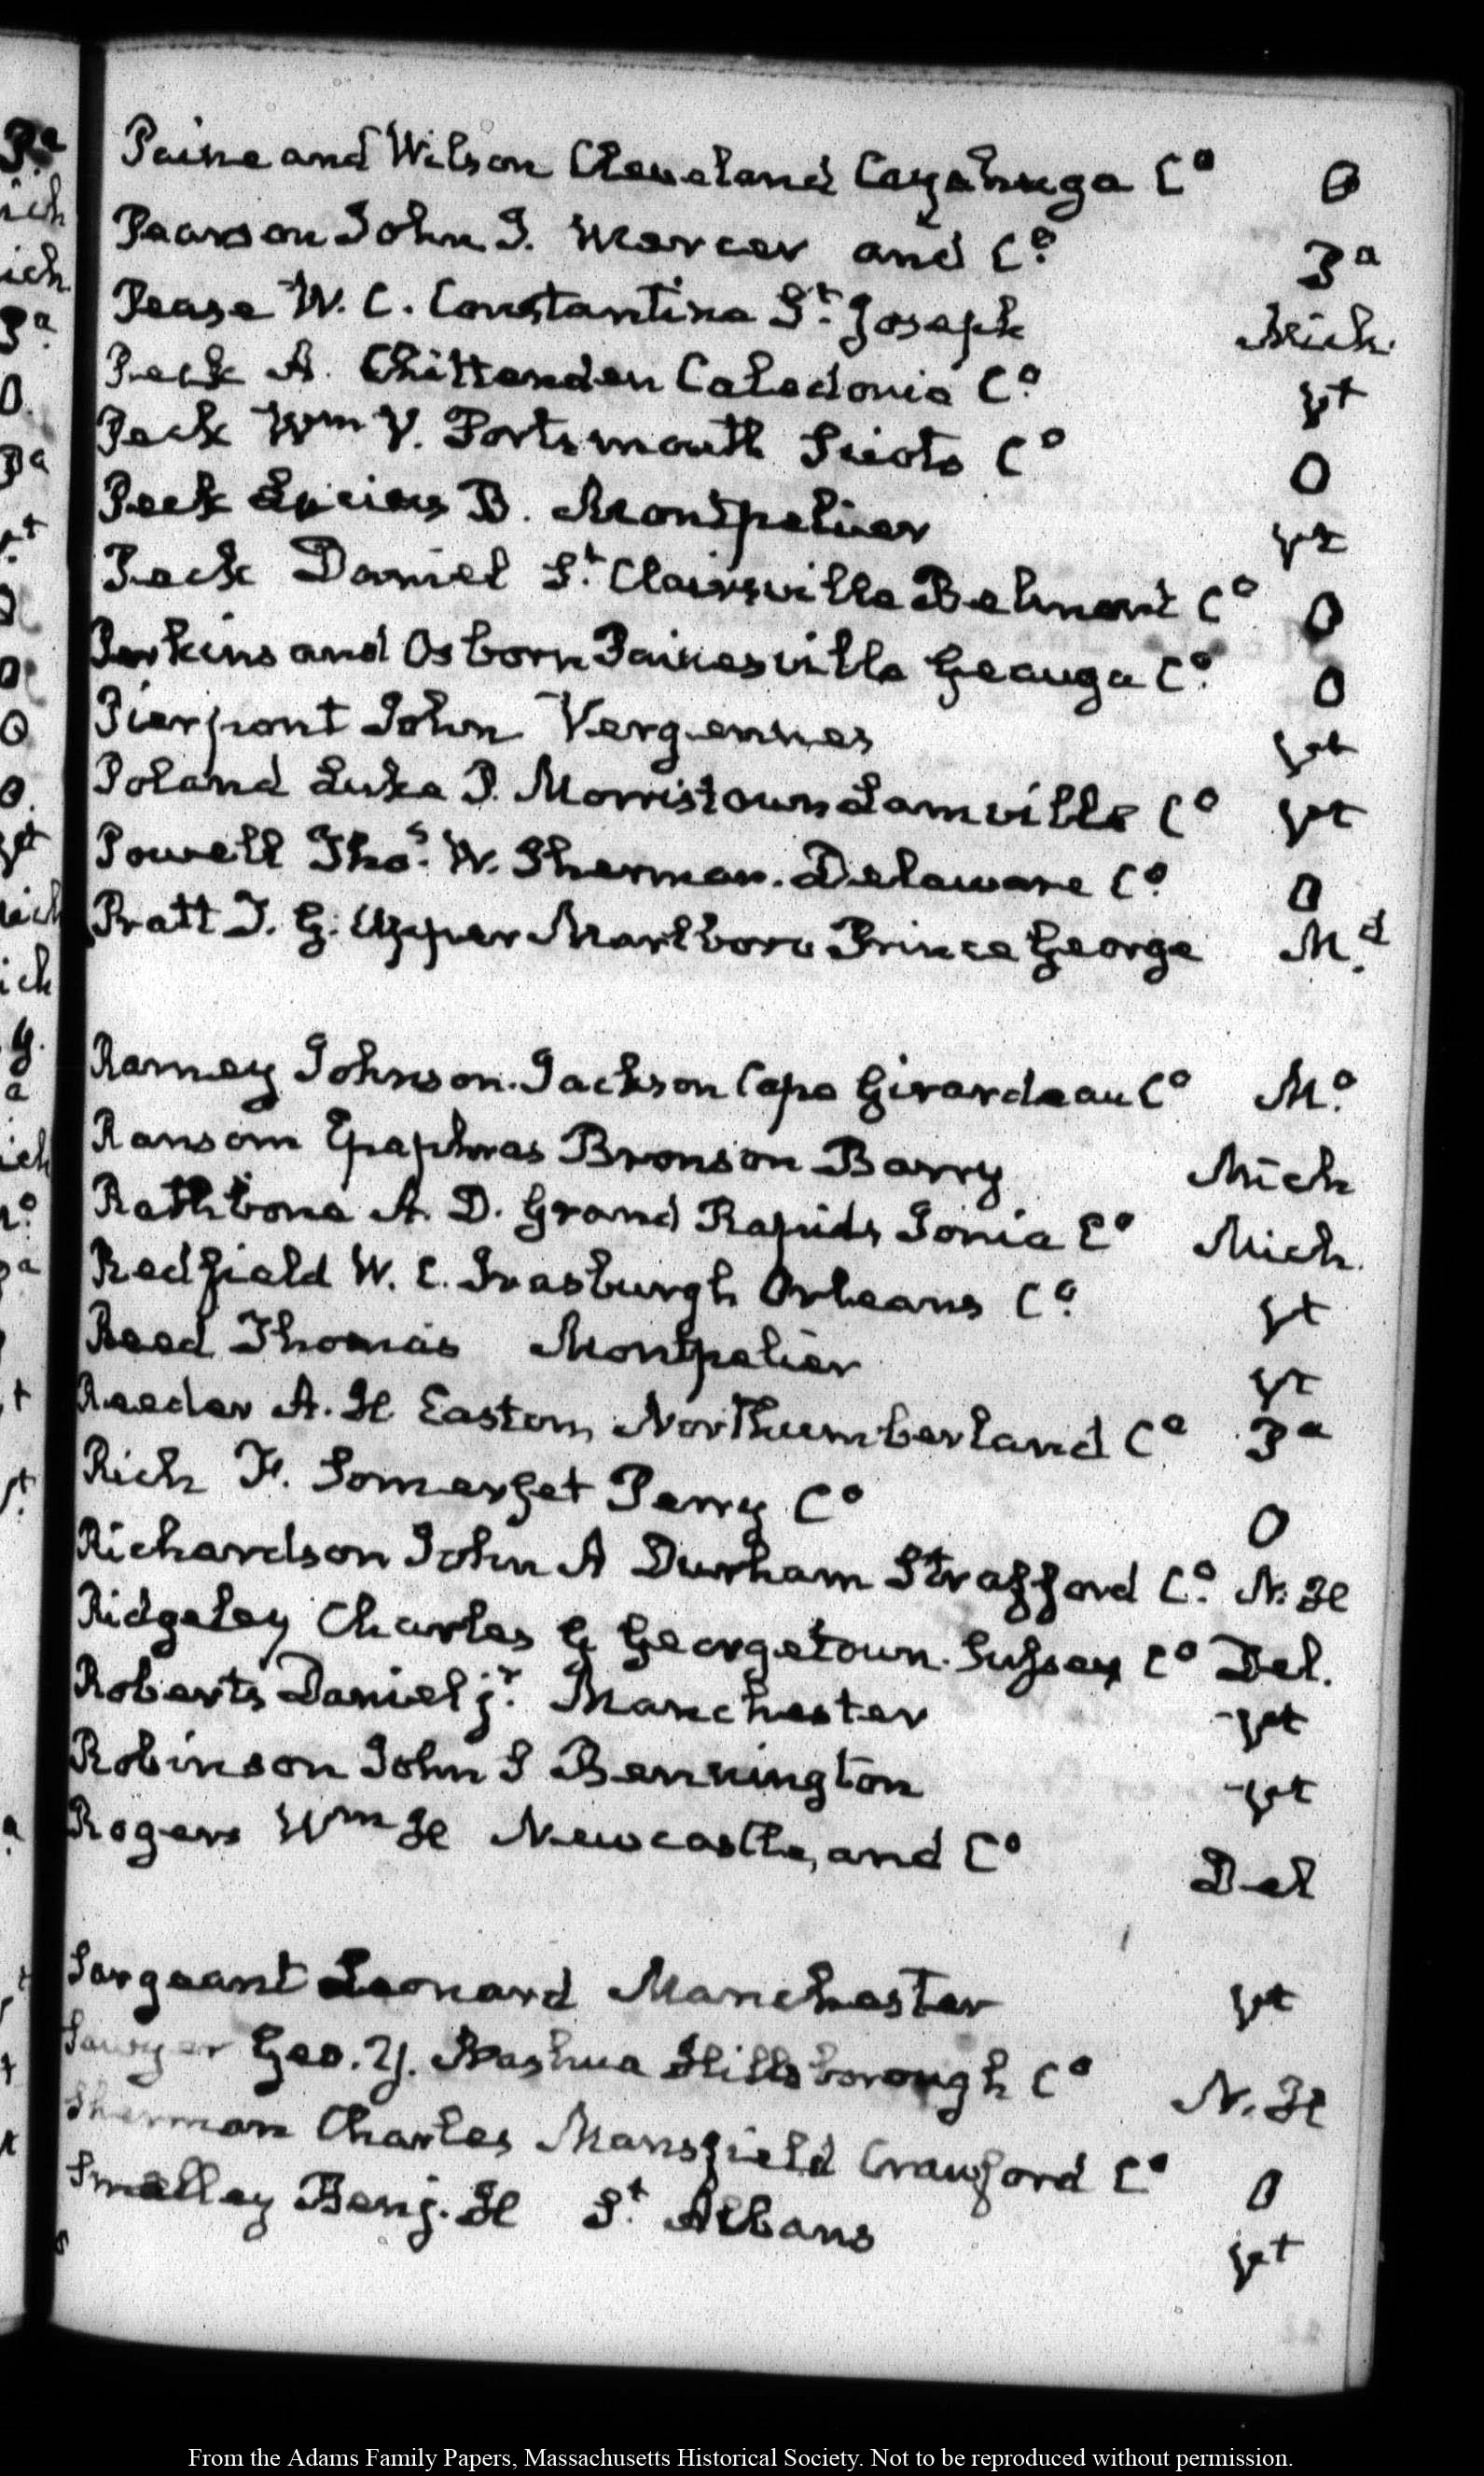 Paine and Wilson Cleveland Cayahuga Co O
Pearson John J. Mercer and Co Pa
Pease W. C. Constantine St. Joseph Mich.
Peck A. Chittenden Caledonia Co Vt
Peck Wm V. Portsmouth Scioto Co O
Peck Lucius B. Montpelier Vt
Peck Daniel St. Clairsville Belmont Co O
Perkins and Osborn Painesville Geauga Co. O
Pierpont John Vergennes Vt
Poland Luke P. Morristown Lamville Co Vt
Powell Thos. W. Sherman. Delaware Co. O
Pratt T. G. Upper Marlboro Prince George Md.
Ramey Johnson. Jackson Cape Girardeau Co Mo.
Ransom Epaphras Bronson Barry Mich
Rathbone A. D. Grand Rapids Ionia Co Mich.
Redfield W. C. Irasburgh Orleans Co. Vt
Reed Thomas Montpelier Vt
Reeder A. H Easton, Northumberland Co Pa
Rich F. Somerset Perry Co O
Richardson John A Durham Strafford Co. N. H
Ridgeley Charles G Georgetown. Sussex Co Del.
Roberts Daniel jr. Manchester Vt
Robinson John S Bennington Vt
Rogers Wm H Newcastle, and Co Del
Sargeant Leonard Manchester Vt
Sawyer Geo. Y. Nashua Hillsborough Co N. H
Sherman Charles Mansfield Crawford Co O
Smalley Benj. H St. Albans Vt
From the Adams Family Papers, Massachusetts Historical Society. Not to be reproduced without permission.